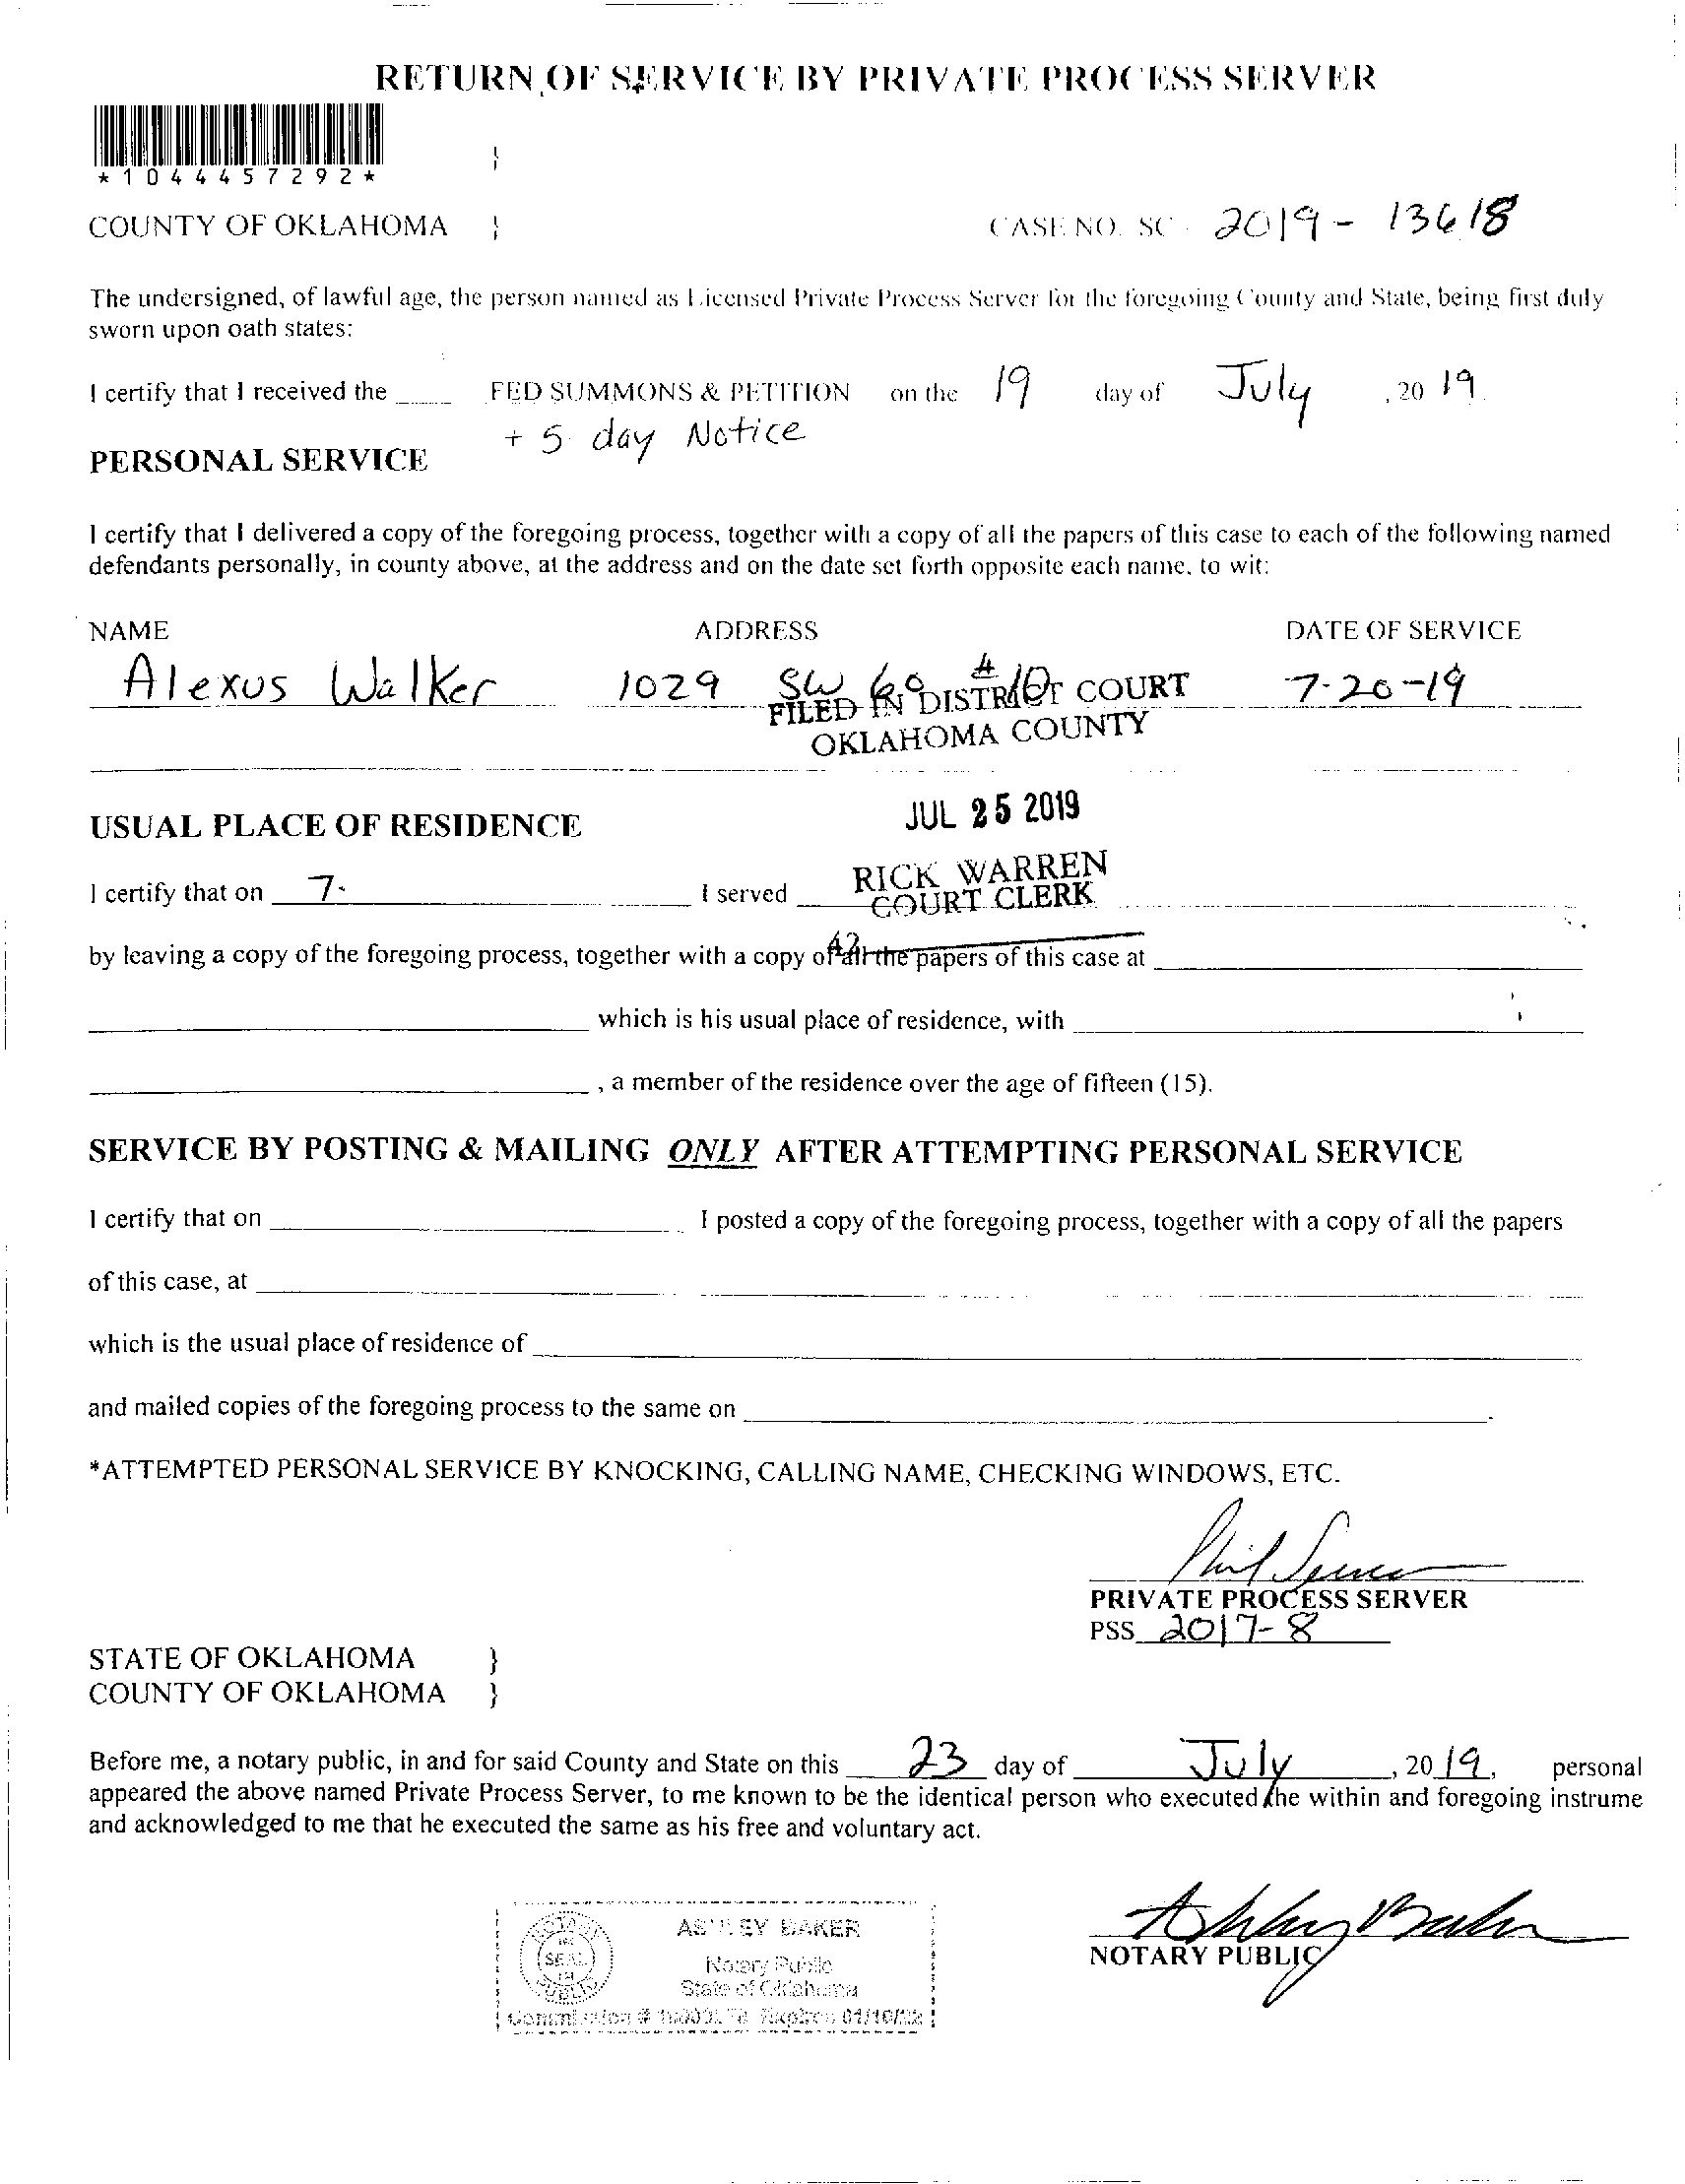 RETURN OF SERVICE BY PRIVATE PROCESS SERVER
*1044457292*
COUNTY OF OKLAHOMA } CASE NO. SC - 2019 - 13618
The undersigned, of lawful age, the person named as Licensed Private Process Server for the foregoing County and State, being first duly
sworn upon oath states:
I certify that I received the ____ FED SUMMONS & PETITION on the 19 day of July , 20 19.
+ 5 day Notice
PERSONAL SERVICE
I certify that I delivered a copy of the foregoing process, together with a copy of all the papers of this case to each of the following named
defendants personally, in county above, at the address and on the date set forth opposite each name, to wit:
NAME ADDRESS DATE OF SERVICE
Alexus Walker 1029 SW 60 # 7-20-19
FILED IN DISTRICT COURT
OKLAHOMA COUNTY
JUL 25 2019
USUAL PLACE OF RESIDENCE
RICK WARREN
COURT CLERK
I certify that on 7- I served
42
by leaving a copy of the foregoing process, together with a copy of all the papers of this case at
which is his usual place of residence, with
, a member of the residence over the age of fifteen (15).
SERVICE BY POSTING & MAILING ONLY AFTER ATTEMPTING PERSONAL SERVICE
I certify that on I posted a copy of the foregoing process, together with a copy of all the papers
of this case, at
which is the usual place of residence of
and mailed copies of the foregoing process to the same on .
*ATTEMPTED PERSONAL SERVICE BY KNOCKING, CALLING NAME, CHECKING WINDOWS, ETC.
PRIVATE PROCESS SERVER
PSS 2017-8
STATE OF OKLAHOMA }
COUNTY OF OKLAHOMA }
Before me, a notary public, in and for said County and State on this 23 day of July , 20 19, personal
appeared the above named Private Process Server, to me known to be the identical person who executed the within and foregoing instrume
and acknowledged to me that he executed the same as his free and voluntary act.
Ashley Baker
NOTARY PUBLIC
ASHLEY BAKER
Notary Public
State of Oklahoma
SEAL